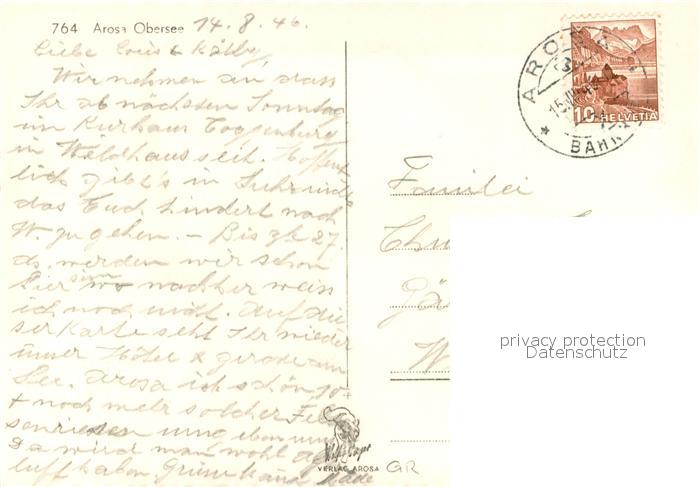 764 Arosa Obersee 14.8.46.
Liebe Louis & Käthy,
Wir nehmen an dass
Ihr ab nächsten Sonntag
im Kurhaus Toggenburg
in Waldhaus seit. Hoffent-
lich gibt's in
das Euch hindert nach
W. zu gehen. – Bis zk 27.
ds. werden wir schon
hier sein wo nachher weiss
ich noch nicht. Auf die-
ser Karte seht Ihr wieder
unser Hotel & gerade am
See. Arosa ist schön, 10
+ noch mehr solcher Fel-
senriesen umgeben uns
Da wird man wohl
luft haben Grüsse
Familie
W
AROSA
15.VIII.46
BAHN
10 HELVETIA
privacy protection
Datenschutz
VERLAG AROSA GR